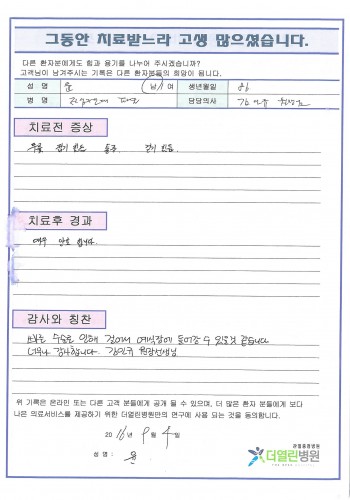 그동안 치료받느라 고생 많으셨습니다.
다른 환자분에게도 힘과 용기를 나누어 주시겠습니까?
고객님이 남겨주시는 기록은 다른 환자분들의 희망이 됩니다.
성 명 윤 (남/여 생년월일
병 명 담당의사 김
치료전 증상
무릎 통증
치료후 경과
매우 만족 합니다.
감사와 칭찬
수술로 인해 걸어서 예식장에 들어갈 수 있을것 같습니다
너무나 감사합니다. 원장선생님
위 기록은 온라인 또는 다른 고객 분들에게 공개 될 수 있으며, 더 많은 환자 분들에게 보다
나은 의료서비스를 제공하기 위한 더열린병원만의 연구에 사용 되는 것을 동의합니다.
20 16 년 9 월 4 일
성 명 : 윤
관절종합병원
더열린병원